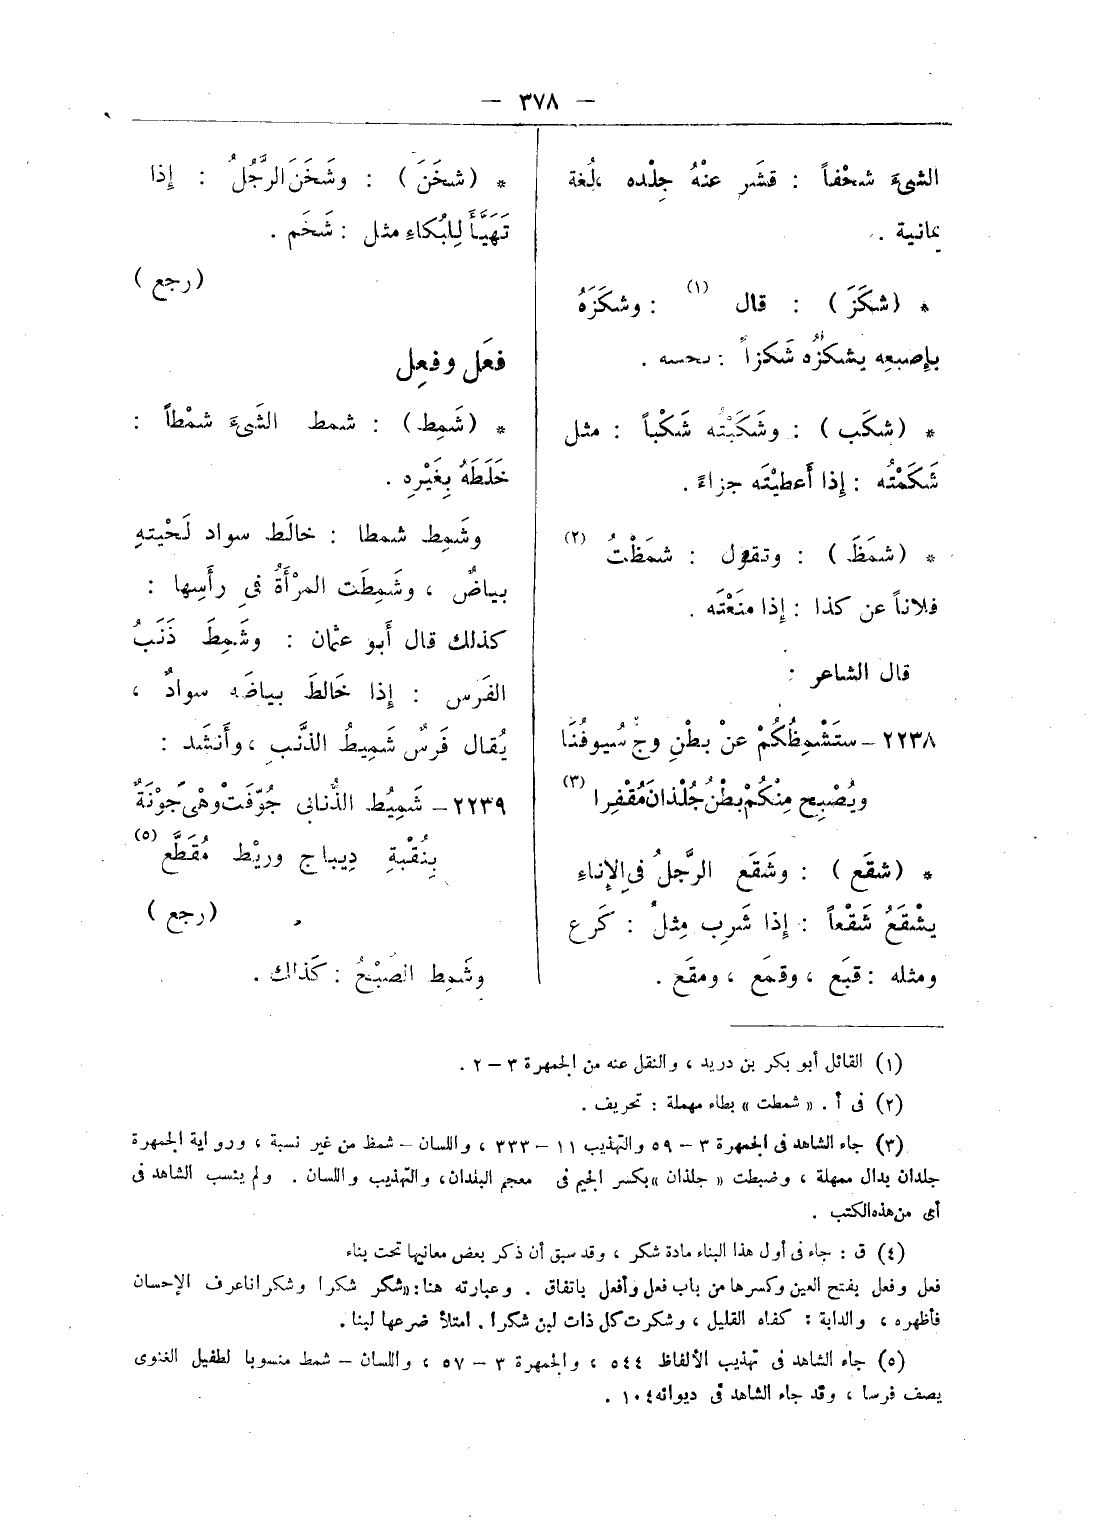 — ٣٧٨ —
الشىءَ شحْفاً : قشَر عنْهُ جِلْده ،لُغة
يمانية .
* (شكَزَ ) : قال (١) : وشكَزَهُ
بإصبعِه يشكزُه شَكزاً : نخسه .
* (شكَب ) : وشَكَبْتُه شَكْباً : مثل
شَكَمْتُه : إذا أَعطيْتَه جزاءً .
* (شمَظَ ) : وتقول : شمَظْتُ (٢)
فلاناً عن كذا : إذا منَعْتَه .
قال الشاعر :
٢٢٣٨ – ستَشْمِظُكُمْ عنْ بطْنِ وجٍّ سُيوفُنَا
ويُصْبِح مِنْكُمْ بطْنُ جُلْذانَ مُقْفِرا (٣)
* (شقَع ) : وشَقَع الرَّجلُ فى الإِناءِ
يشْقَعُ شَقْعاً : إِذا شَرِب مِثلُ : كَرع
ومثله : قبَع ، وقمَع ، ومقَع .
* (شخَنَ ) : وشَخَنَ الرَّجُلُ : إذا
تَهَيَّأَ لِلبُكاءِ مثل : شَخَم .
(رجع )
فعَل وفعِل
* (شَمِط ) : شمط الشَىءَ شمْطاً :
خَلَطَهُ بِغَيْرِهِ .
وشَمِط شمطا : خالَط سواد لَحْيتهِ
بياضٌ ، وشَمِطَت المرْأَةُ فى رأسِها :
كذلك قال أَبو عثمان : وشَمِطَ ذَنَبُ
الفَرَس : إِذا خَالطَ بياضَه سوادٌ ،
يُقال فَرسٌ شَمِيطُ الذنَب ، وأَنشَد :
٢٢٣٩ – شَمِيُط الذُّنابى جُوِّفَتْ وهْى جَوْنَةٌ
بِنُقْبةِ دِيباج وريْط مُقَطَّع (٥)
(رجع )
وشَمِط الصُبْحُ : كَذالك .
(١) القائل أبو بكر بن دريد ، والنقل عنه من الجمهرة ٣ – ٢ .
(٢) فى أ . « شمطت » بطاء مهملة : تحريف .
(٣) جاء الشاهد فى الجمهرة ٣ – ٥٩ والتهذيب ١١ – ٣٣٣ ، واللسان – شمظ من غير نسبة ، ورواية الجمهرة
جلدان بدال مهملة ، وضبطت « جلذان » بكسر الجيم فى معجم البلدان، والتهذيب واللسان . ولم ينسب الشاهد فى
أى من هذه الكتب .
(٤) ق : جاء فى أول هذا البناء مادة شكر ، وقد سبق أن ذكر بعض معانيها تحت بناء
فعل وفعل بفتح العين وكسرها من باب فعل وأفعل باتفاق . وعبارته هنا: «شكر شكرا وشكراناعرف الإحسان
فأظهره ، والدابة : كفاه القليل ، وشكرت كل ذات لبن شكرا . امتلأ ضرعها لبنا .
(٥) جاء الشاهد فى تهذيب الألفاظ ٥٤٤ ، والجمهرة ٣ – ٥٧ ، واللسان – شمط منسوبا لطفيل الغنوى
يصف فرسا ، وقد جاء الشاهد فى ديوانه ١٠٤ .